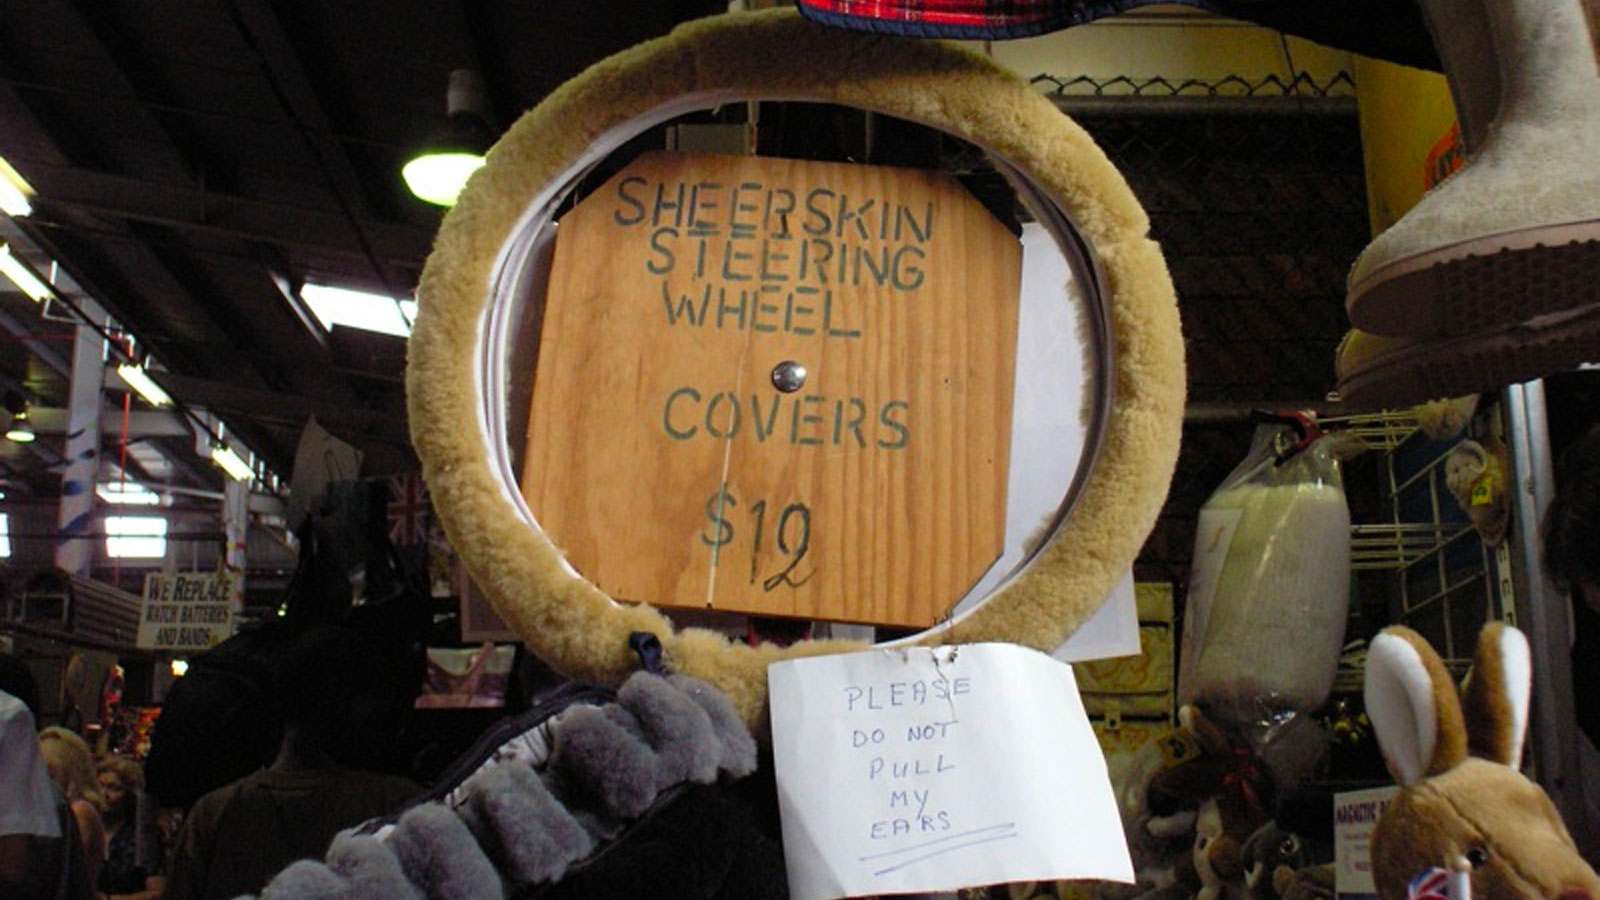 SHEERSKIN
STEERING
WHEEL
COVERS
$12
PLEASE
DO NOT
PULL
MY
EARS
WE REPLACE
WATCH BATTERIES
AND BANDS
MAGNETIC